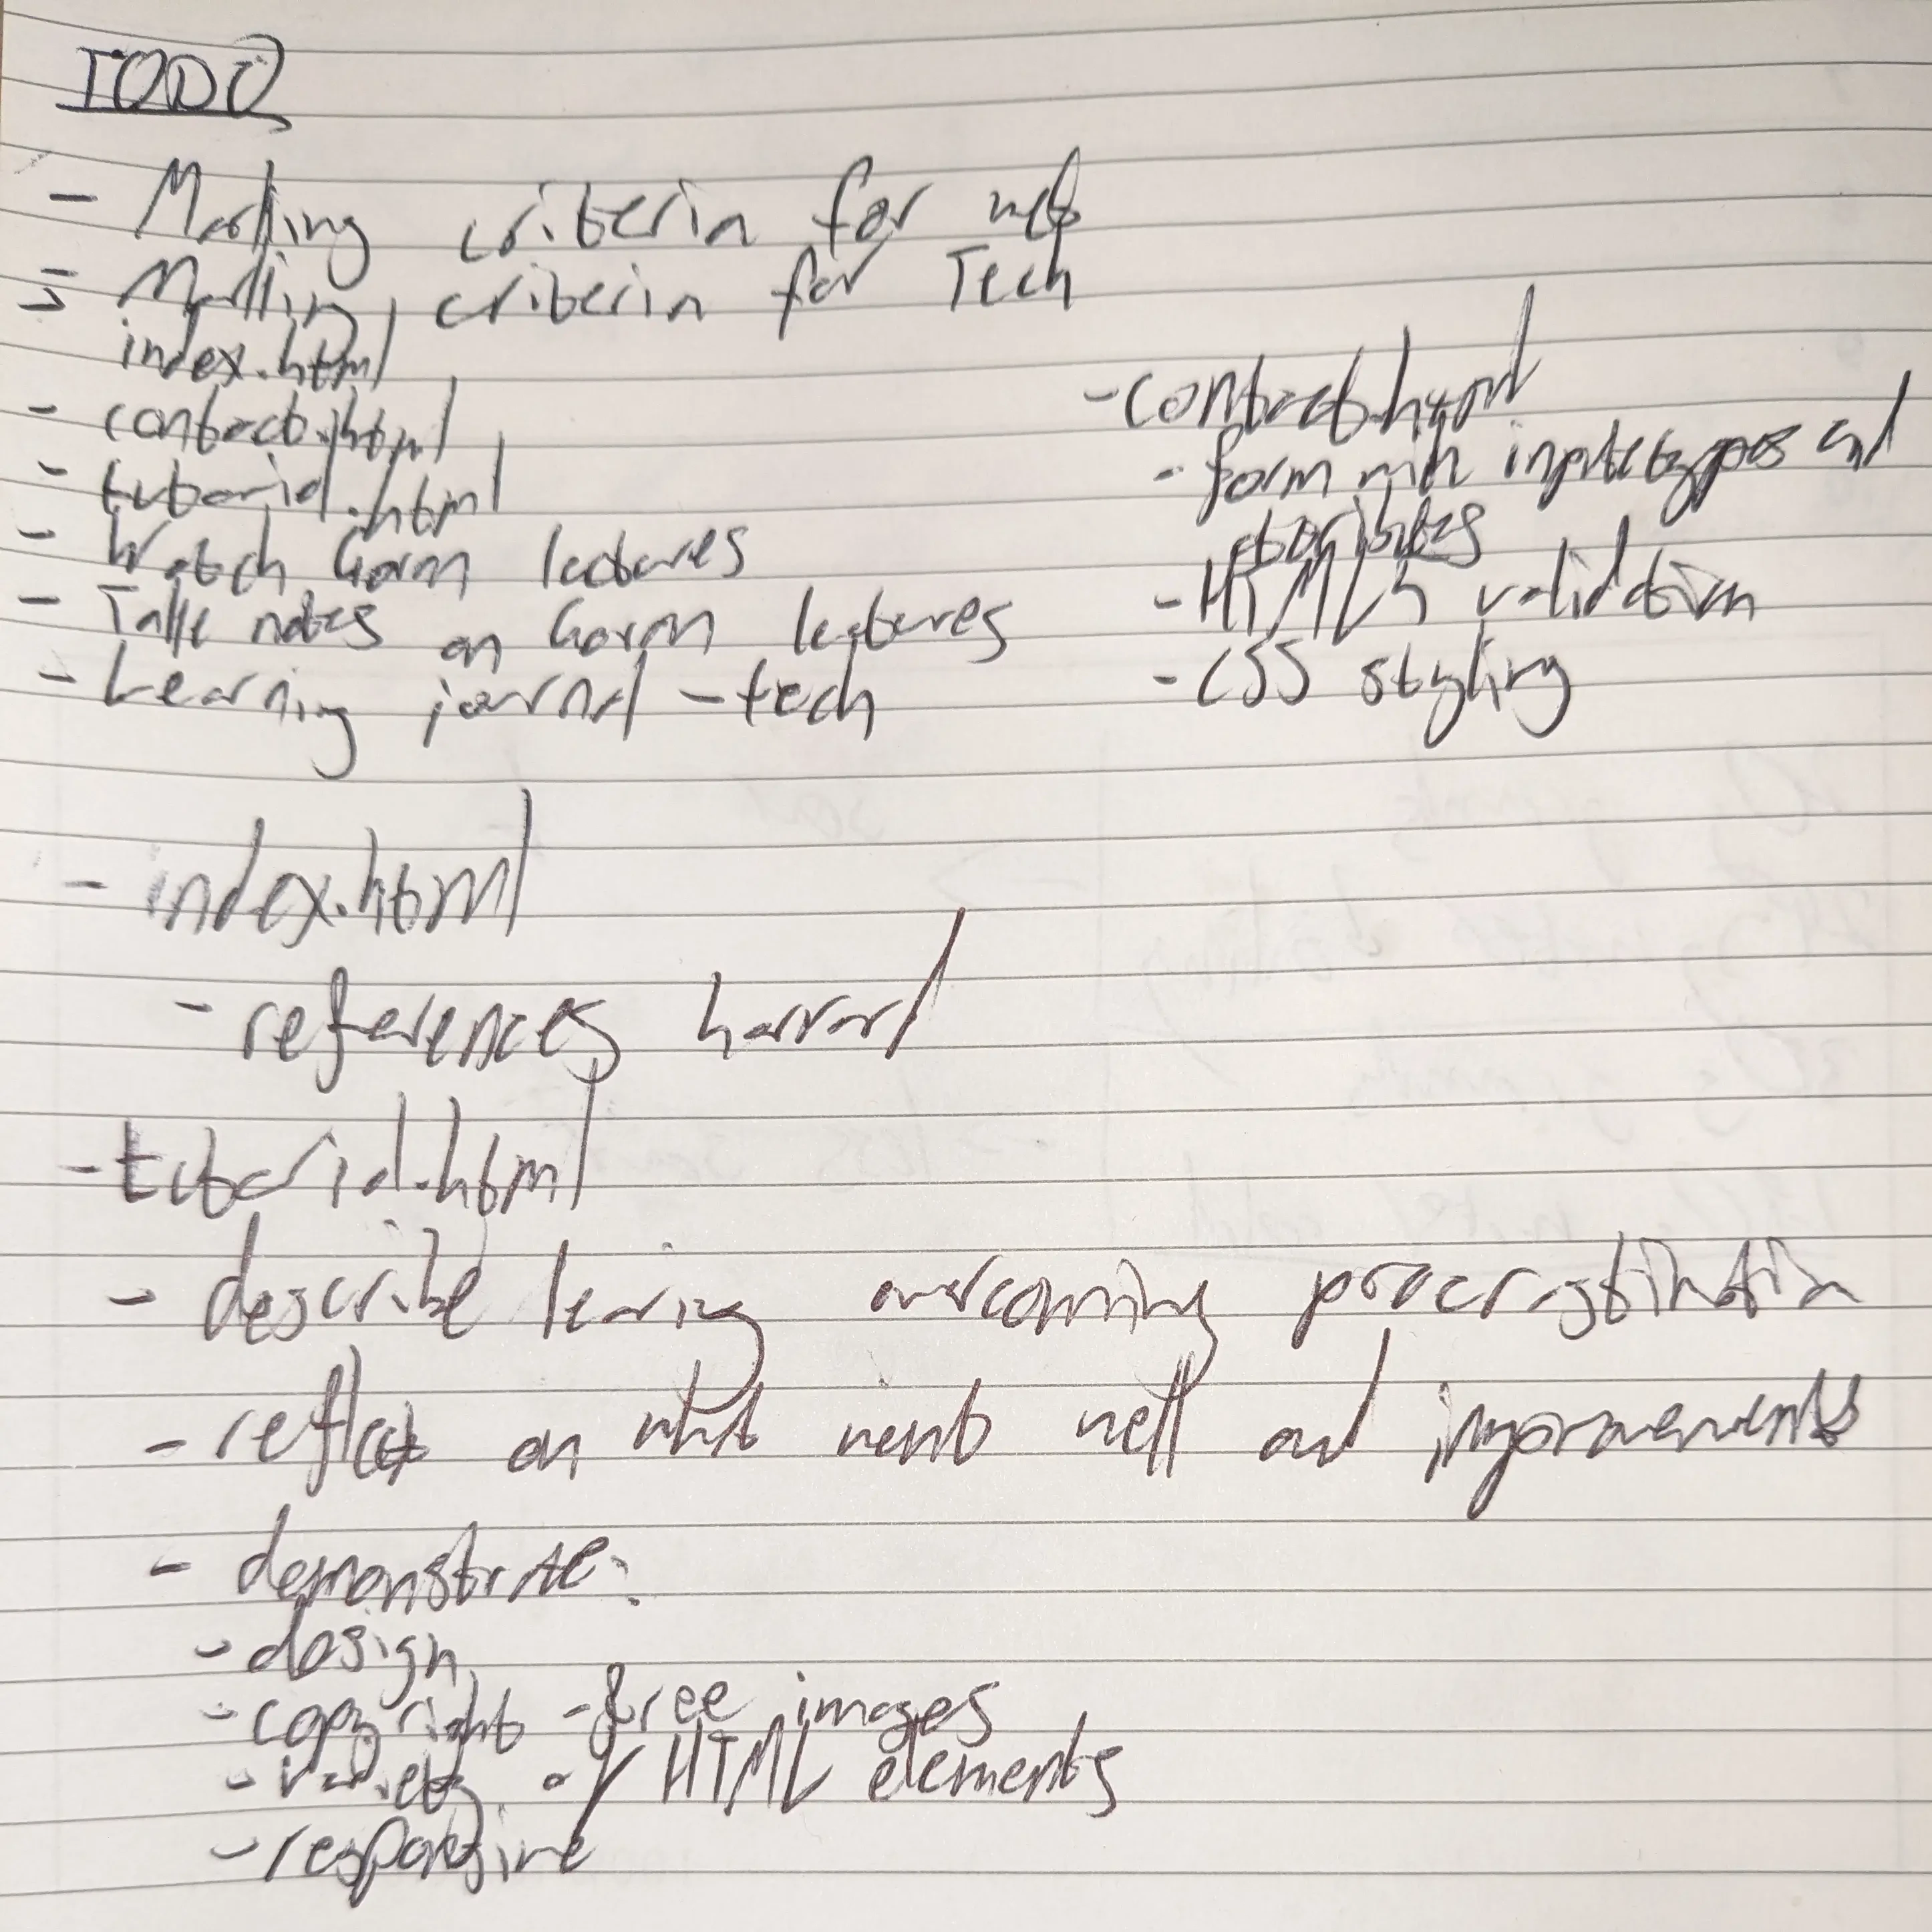 TODO
- Marking criteria for web
- Marking criteria for Tech
index.html
- contact.html
- tutorial.html
- Watch Gorm lectures
- Take notes on Gorm lectures
- Learning journal - tech
- contact.html
- form with input types and
attributes
- HTML5 validation
- CSS styling
- index.html
- references harvard
- tutorial.html
- describe learing overcoming procrastination
- reflect on what went well and improvements
- demonstrate:
- design
- copyright - free images
- variety of HTML elements
- responsive